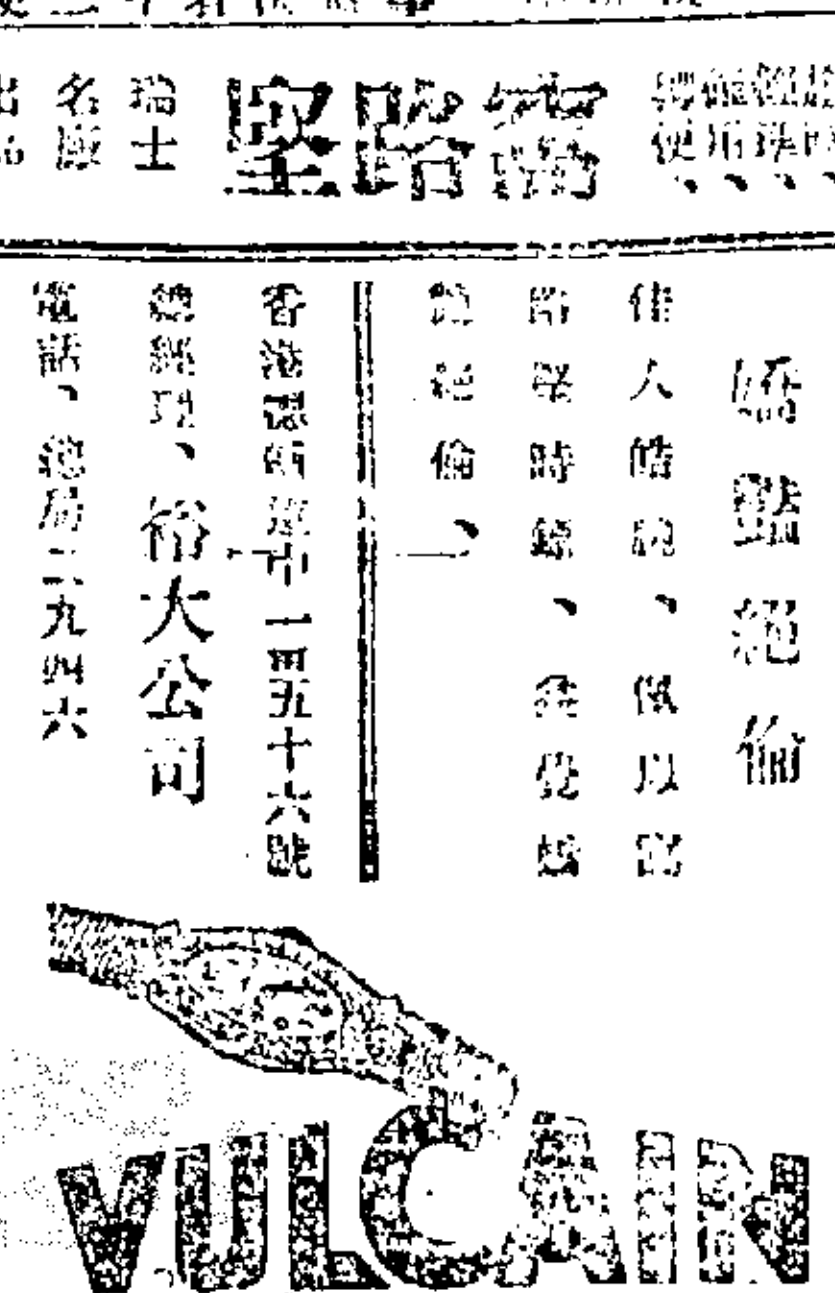 窩路堅
瑞士
名廠
出品
嬌艷絕倫
佳人皓腕、佩以窩
路堅時錶、愈覺嬌
艷絕倫、
香港德輔道中一百五十六號
總經理、裕大公司
電話、總局二九四六
VULCAIN